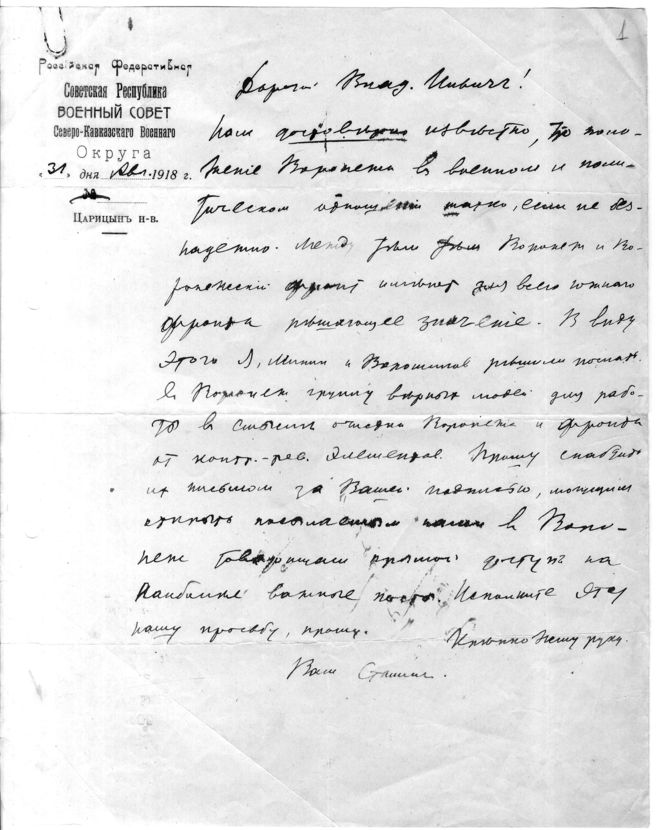 1
Россiйская Федеративная
Советская Республика
ВОЕННЫЙ СОВЕТ
Северо-Кавказскаго Военнаго
Округа
„31" дня Авг. 1918 г.
№
Царицынъ н-в.
Дорогой Влад. Ильич!
Нам достовѣрно извѣстно, что поло-
женiе Воронежа в военном и поли-
тическом отношенiи шатко, если не без-
надежно. Между тѣм Воронеж и Во-
ронежскiй фронт имѣют для всего южнаго
фронта рѣшающее значенiе. В виду
этого я, Минин и Ворошилов рѣшили послать
в Воронеж группу вѣрных людей для рабо-
ты в смыслѣ очистки Воронежа и фронта
от контр.-рев. элементов. Прошу снабдить
их письмом за Вашей подписью, могущим
открыть посылаемым нами в Воро-
неж товарищам прямой доступ на
наиболѣе важные посты. Исполните эту
нашу просьбу, прошу.
Крѣпко жму руку.
Ваш Сталин.